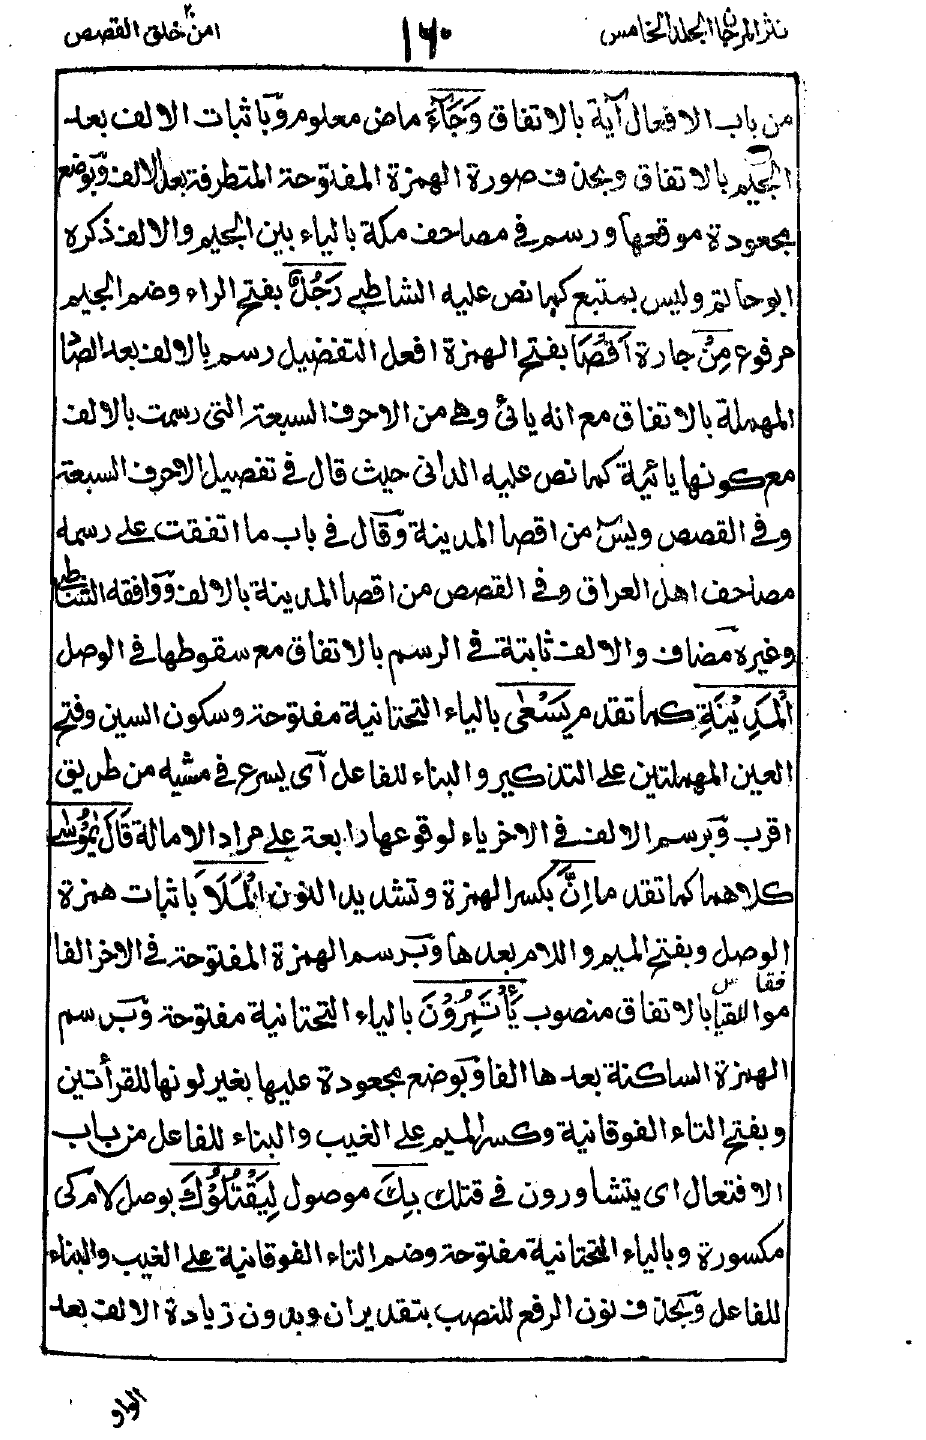 نثر المرجان الجلد الخامس
١٦٠
امن٢٠ خلق القصص
من باب الافعال آية بالاتفاق وَجَآءَ ماض معلوم وباثبات الالف بعد
الجيم بالاتفاق وبحذف صورة الهمزة المفتوحة المتطرفة بعد الالف وبوضع
مجعودة موقعها ورسم في مصاحف مكة بالياء بين الجيم والالف ذكره
ابو حاتم وليس بمتبع كما نص عليه الشاطبي رَجُلٌ بفتح الراء وضم الجيم
مرفوع مِنْ جارة اَقْصَا بفتح الهمزة افعل التفضيل رسم بالالف بعد الصاد
المهملة بالاتفاق مع انه يائي وهي من الاحرف السبعة التي رسمت بالالف
مع كونها يائية كما نص عليه الداني حيث قال في تفصيل الاحرف السبعة
وفي القصص ويس من اقصا المدينة وقال في باب ما اتفقت على رسمه
مصاحف اهل العراق وفي القصص من اقصا المدينة بالالف ووافقه الشاطبي
وغيره مضاف والالف ثابتة في الرسم بالاتفاق مع سقوطها في الوصل
الْمَدِيْنَةِ كما تقدم يَسْعٰى بالياء التحتانية مفتوحة وسكون السين وفتح
العين المهملتين على التذكير والبناء للفاعل اى يسرع في مشيه من طريق
اقرب وبرسم الالف في الاخر ياء لوقوعها رابعة على مراد الامالة قَالَ يٰمُوْسٰى
كلاهما كما تقدما اِنَّ بكسر الهمزة وتشديد النون الْمَلَاَ باثبات همزة
الوصل وبفتح الميم واللام بعدها وبرسم الهمزة المفتوحة في الاخر الفا
موافقا للقياس بالاتفاق منصوب يَأْتَمِرُوْنَ بالياء التحتانية مفتوحة وبرسم
الهمزة الساكنة بعدها الفا وبوضع مجعودة عليها بغير لونها للقرأتين
وبفتح التاء الفوقانية وكسر الميم على الغيب والبناء للفاعل من باب
الافتعال اى يتشاورون في قتلك بِكَ موصول لِيَقْتُلُوْكَ بوصل لام كى
مكسورة وبالياء التحتانية مفتوحة وضم التاء الفوقانية على الغيب والبناء
للفاعل وبحذف نون الرفع للنصب بتقدير ان وبدون زيادة الالف بعد
الواو